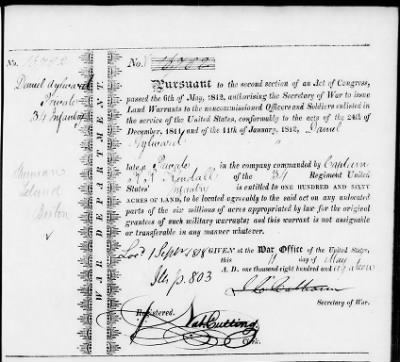 No.
Daniel Aylward
Private
34 Infantry
Boston
WAR DEPARTMENT.
No.
Pursuant to the second section of an Act of Congress,
passed the 6th of May, 1812, authorising the Secretary of War to issue
Land Warrants to the noncommissioned Officers and Soldiers enlisted in
the service of the United States, conformably to the acts of the 24th of
December, 1811, and of the 11th of January, 1812, Daniel
Aylward
late a Private
in the company commanded by Captain
Kendall of the 34 Regiment United
States' Infantry is entitled to ONE HUNDRED AND SIXTY
ACRES OF LAND, to be located agreeably to the said act on any unlocated
parts of the six millions of acres appropriated by law for the original
grantees of such military warrants; and this warrant is not assignable
or transferable in any manner whatever.
1 Sept 1818 GIVEN at the War Office of the United States,
this day of May
A. D. one thousand eight hundred and
p. 803
J C Calhoun
Secretary of War.
Registered.
Cutting
Clerk.